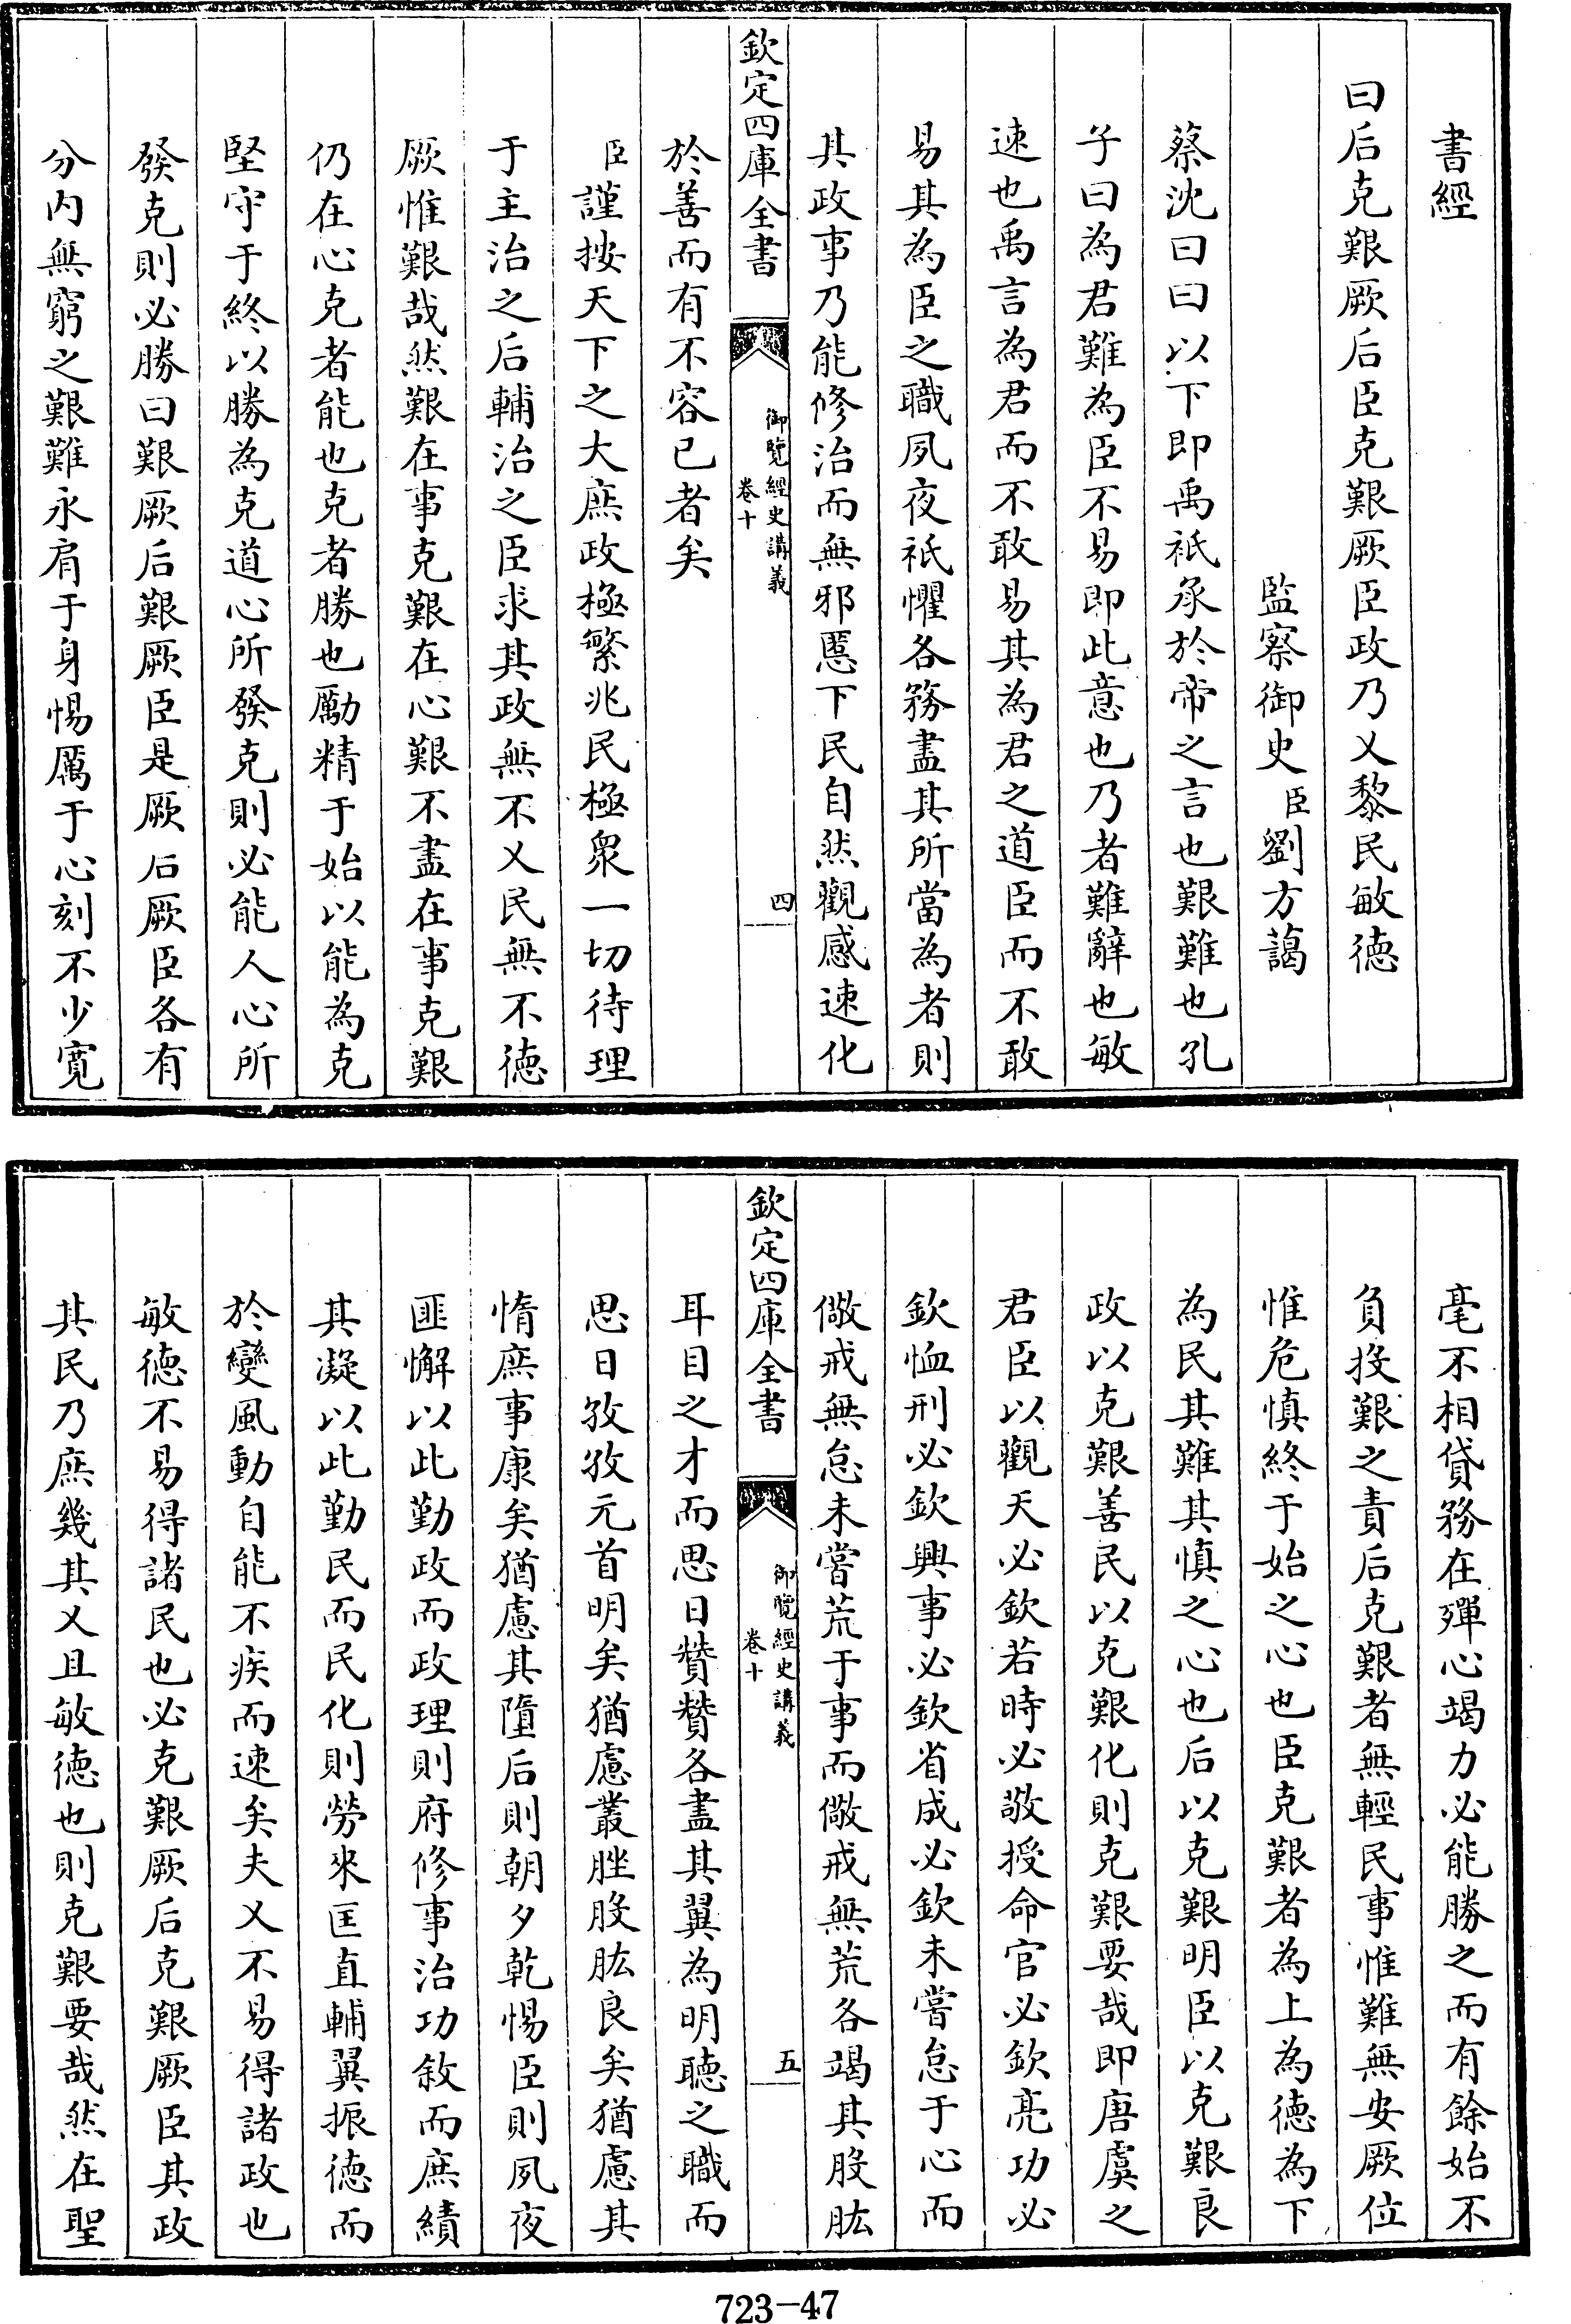 書經
曰后克艱厥后臣克艱厥臣政乃乂黎民敏徳
監察御史臣劉方藹
蔡沈曰曰以下即禹祇承於帝之言也艱難也孔
子曰為君難為臣不易即此意也乃者難辭也敏
速也禹言為君而不敢易其為君之道臣而不敢
易其為臣之職夙夜祇懼各務盡其所當為者則
其政事乃能修治而無邪慝下民自然觀感速化
欽定四庫全書
御覽經史講義
卷十
四
於善而有不容已者矣
臣謹按天下之大庶政極繁兆民極衆一切待理
于主治之后輔治之臣求其政無不乂民無不徳
厥惟艱哉然艱在事克艱在心艱不盡在事克艱
仍在心克者能也克者勝也勵精于始以能為克
堅守于終以勝為克道心所發克則必能人心所
發克則必勝曰艱厥后艱厥臣是厥后厥臣各有
分内無窮之艱難永肩于身惕厲于心刻不少寛
毫不相貸務在殫心竭力必能勝之而有餘始不
負投艱之責后克艱者無輕民事惟難無安厥位
惟危慎終于始之心也臣克艱者為上為徳為下
為民其難其慎之心也后以克艱明臣以克艱良
政以克艱善民以克艱化則克艱要哉即唐虞之
君臣以觀天必欽若時必敬授命官必欽亮功必
欽恤刑必欽興事必欽省成必欽未嘗怠于心而
儆戒無怠未嘗荒于事而儆戒無荒各竭其股肱
欽定四庫全書
御覽經史講義
卷十
五
耳目之才而思日贊贊各盡其翼為明聽之職而
思日孜孜元首明矣猶慮叢脞股肱良矣猶慮其
惰庶事康矣猶慮其墮后則朝夕乾惕臣則夙夜
匪懈以此勤政而政理則府修事治功敘而庶績
其凝以此勤民而民化則勞來匡直輔翼振徳而
於變風動自能不疾而速矣夫乂不易得諸政也
敏徳不易得諸民也必克艱厥后克艱厥臣其政
其民乃庶幾其乂且敏徳也則克艱要哉然在聖
723-47